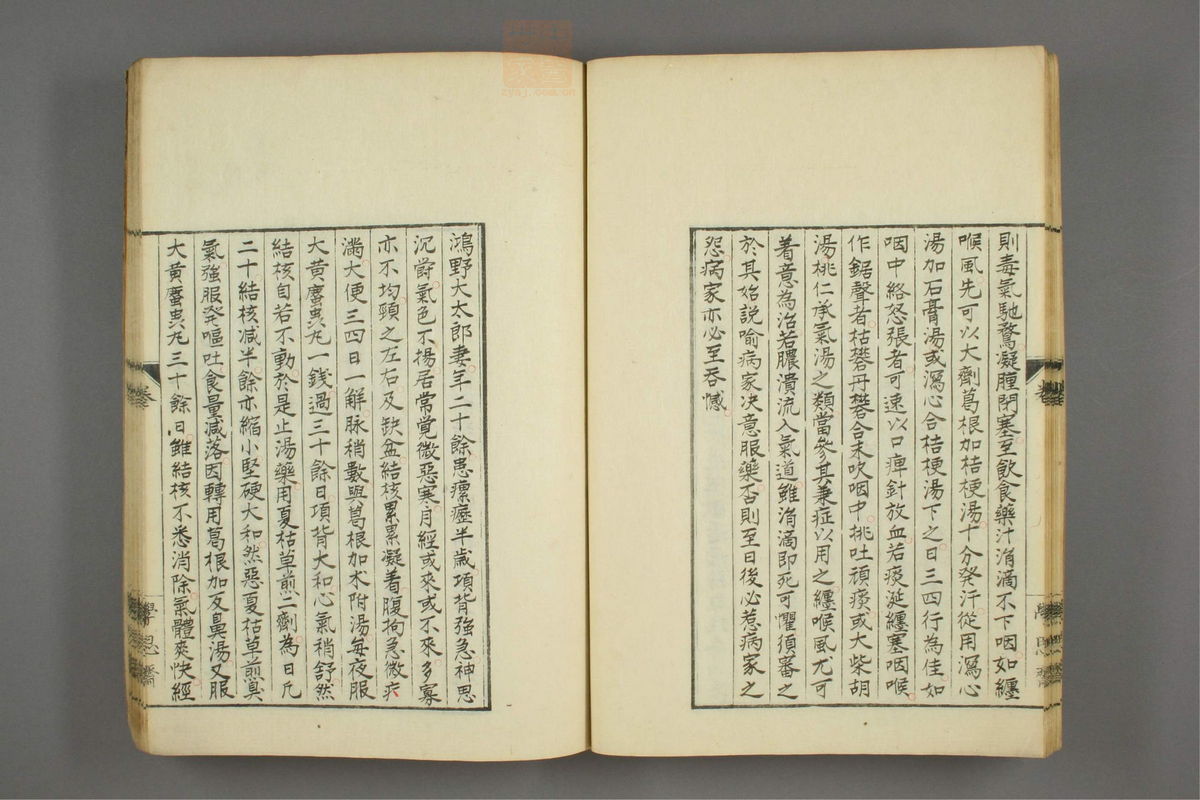 則毒氣馳騖凝腫閉塞至飲食藥汁涓滴不下咽如纏
喉風先可以大劑葛根加桔梗湯十分発汗従用瀉心
湯加石膏湯或瀉心合桔梗湯下之日三四行為佳如
咽中絡怒張者可速以口痺針放血若痰涎纏塞咽喉
作鋸聲者枯礬丹礬合末吹咽中挑吐頑痰或大柴胡
湯桃仁承氣湯之類當參其兼症以用之纏喉風尤可
着意為治若膿潰流入氣道雖涓滴即死可懼須審之
於其始説喻病家决意服藥否則至日後必惹病家之
怨病家亦必至吞憾
鴻野大太郎妻年二十餘患瘰癧半歳項背強急神思
沉欝氣色不揚居常覚微惡寒月經或來或不來多寡
亦不均頸之左右及缺盆結核累累凝着腹拘急微疚
滿大便三四日一解脉稍數與葛根加朮附湯每夜服
大黄䗪虫丸一錢過三十餘日項背大和心氣稍舒然
結核自若不動於是止湯藥用夏枯草煎二劑為日凡
二十結核減半餘亦縮小堅硬大和然惡夏枯草煎臭
氣強服発嘔吐食量減落因轉用葛根加反鼻湯又服
大黄䗪虫丸三十餘日雖結核不悉消除氣體爽快經
學思齋
zysj.com.cn